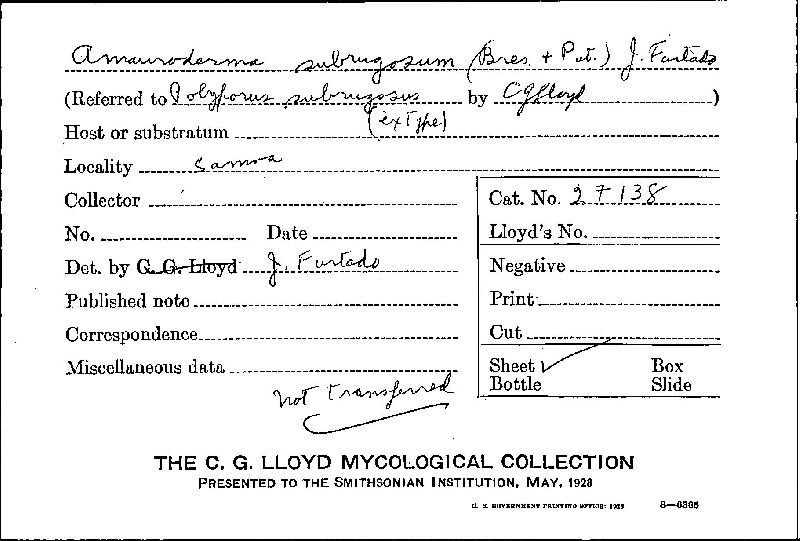 Amauroderma subrugosum (Bres. + Pat.) J. Furtado
(Referred to Polyporus subrugosus by CGLloyd)
(exType)
Host or substratum
Locality Samoa
Collector
No. Date
Det. by C. G. Lloyd J. Furtado
Published note
Correspondence
Miscellaneous data
not transferred
Cat. No. 27138
Lloyd's No.
Negative
Print
Cut
Sheet ✓ Box
Bottle Slide
THE C. G. LLOYD MYCOLOGICAL COLLECTION
PRESENTED TO THE SMITHSONIAN INSTITUTION, MAY, 1928
U. S. GOVERNMENT PRINTING OFFICE: 1929 8—6395